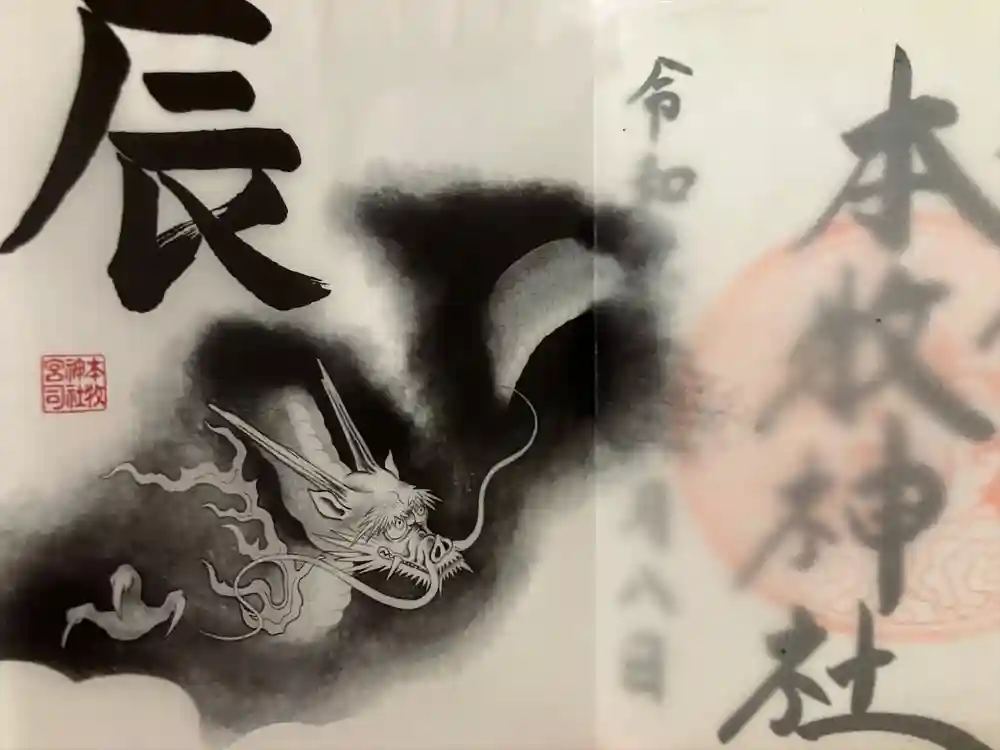 本牧神社
令和
月八日
辰
本牧
神社
宮司